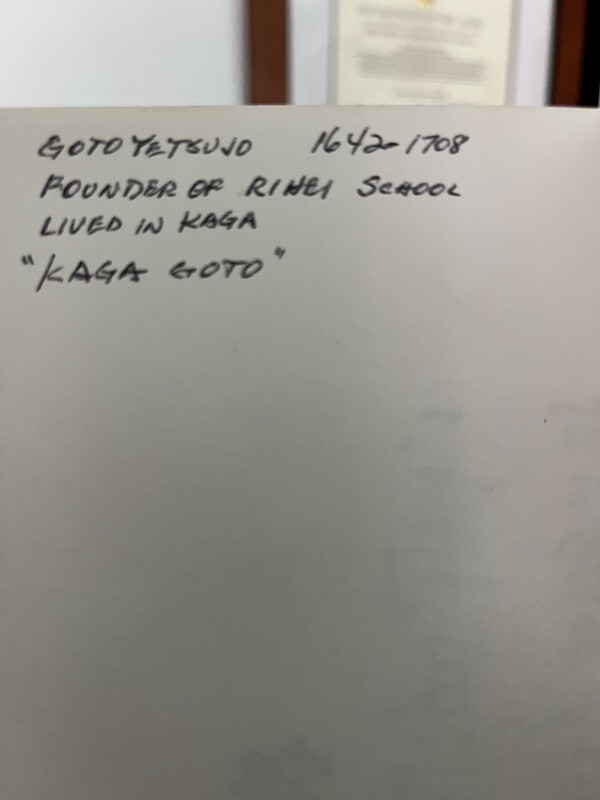 GOTO YETSUJO 1642-1708
FOUNDER OF RIHEI SCHOOL
LIVED IN KAGA
"KAGA GOTO"